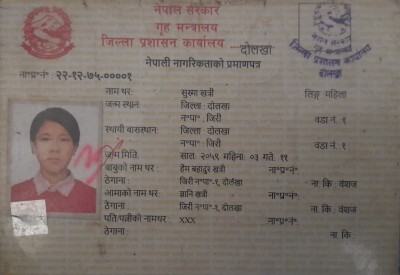 नेपाल सरकार
गृह मन्त्रालय
जिल्ला प्रशासन कार्यालय ---दोलखा
नेपाली नागरिकताको प्रमाणपत्र
ना॰प्र॰नं॰ २२-१२-७५-००००१
नाम थर: सुष्मा खत्री लिङ्ग महिला
जन्म स्थान: जिल्ला : दोलखा
न॰पा॰: जिरी वडा नं. १
स्थायी बासस्थान: जिल्ला : दोलखा
न॰पा॰: जिरी वडा नं. १
जन्म मिति: साल: २०५९ महिना: ०३ गते: ११
बाबुको नाम थर: हेम बहादुर खत्री ना॰प्र॰नं॰
ठेगाना : जिरी न॰पा॰-१, दोलखा ना. कि. वंशज
आमाको नाम थर: ज्ञानि खत्री ना॰प्र॰नं॰
ठेगाना : जिरी न॰पा॰-१, दोलखा ना. कि: वंशज
पति/पत्नीको नामथर: XXX ना॰प्र॰नं॰
ठेगाना : ना कि.
नेपाल सरकार
गृह मन्त्रालय
जिल्ला प्रशासन कार्यालय
दोलखा